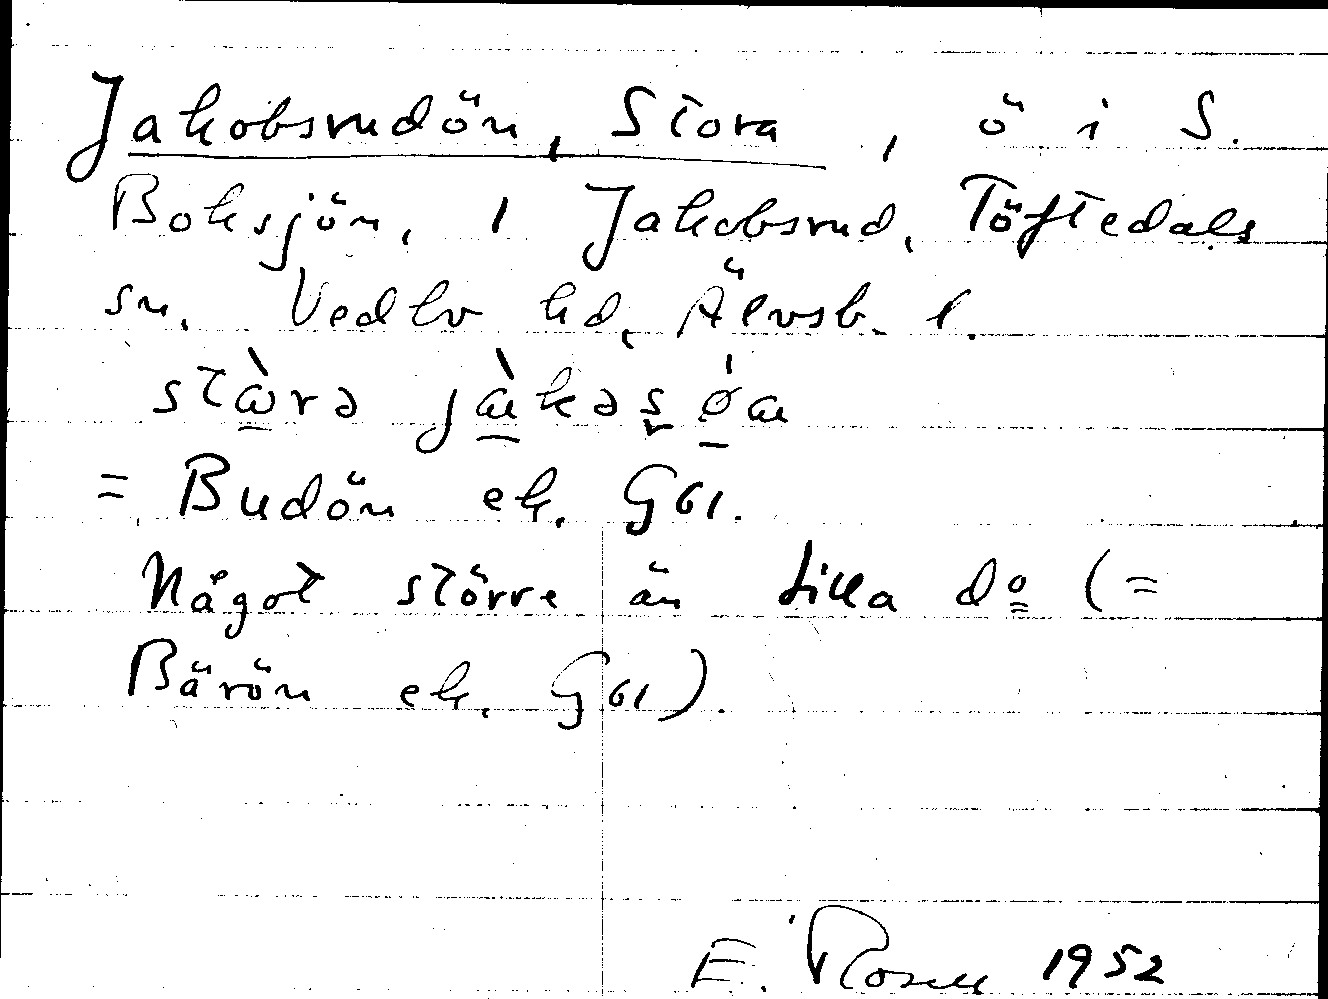 Jakobsrudön, Stora, ö i S.
Boksjön, 1 Jakobsrud, Töftedals
sn. Vedbo hd, Älvsb. l.
= Budön ek. G61.
Något större än Lilla do (=
Bärön ek. G61).
E. Rosell 1952